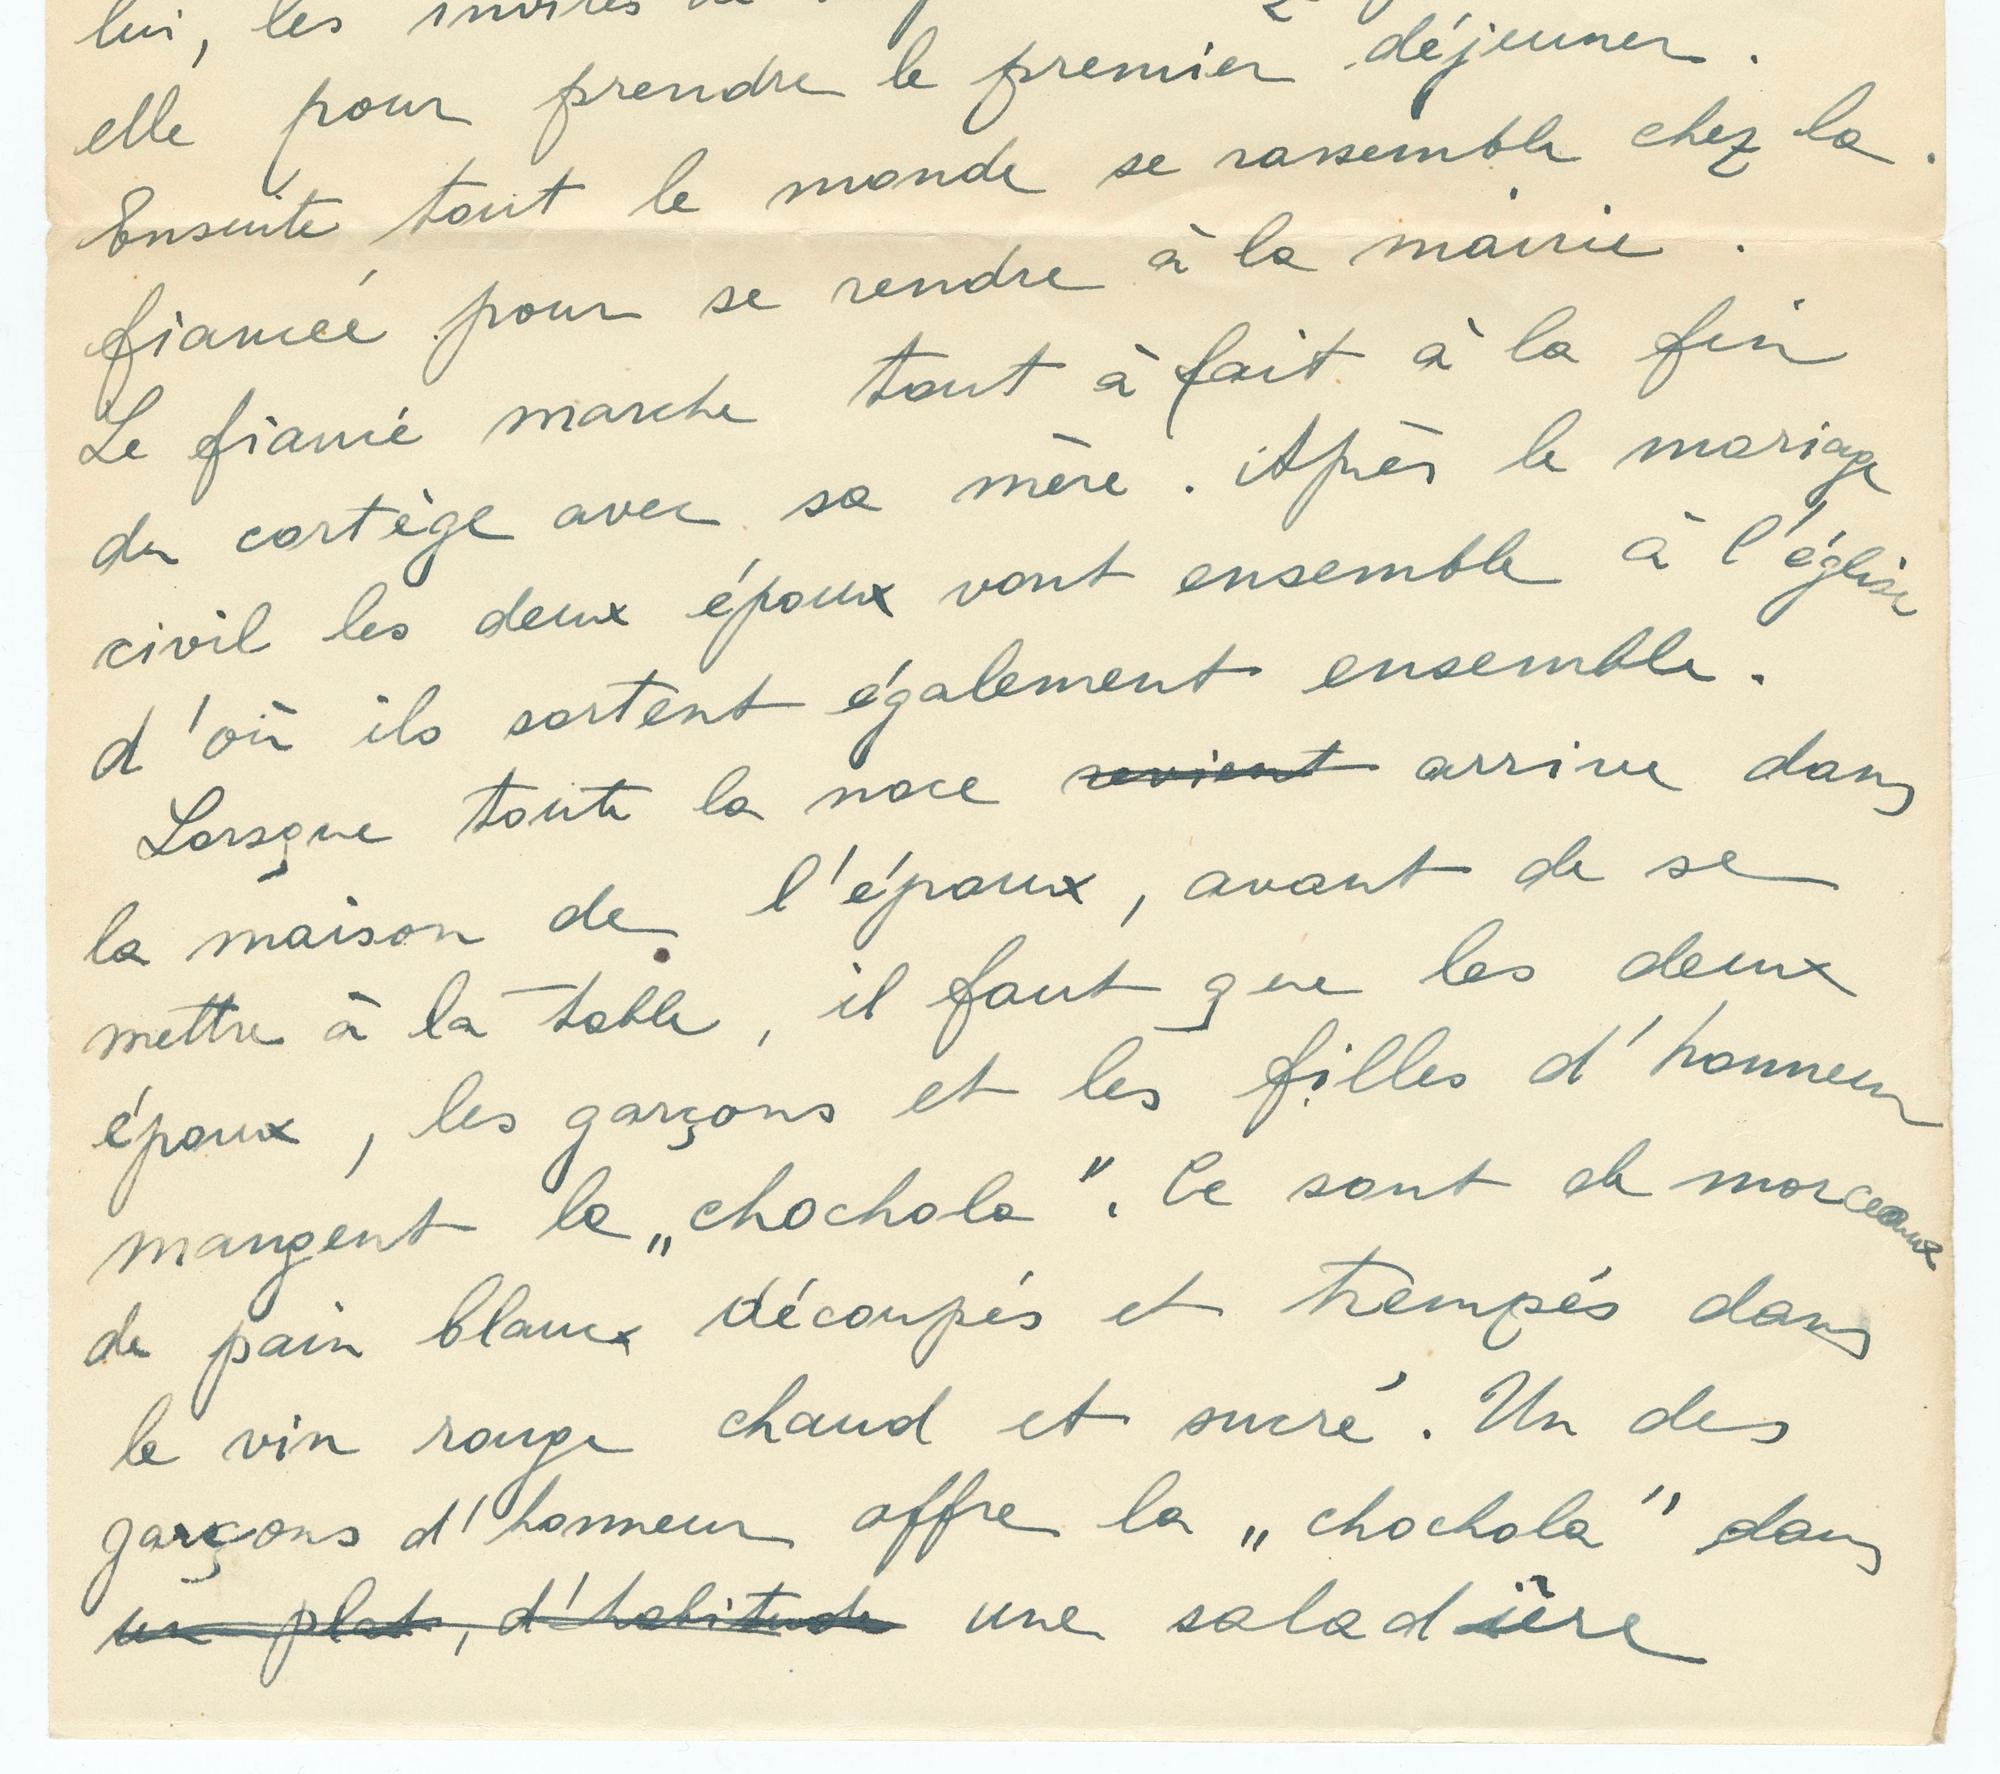 lui, les invités de
elle pour prendre le premier déjeuner.
Ensuite tout le monde se rassemble chez la
fiancée pour se rendre à la mairie.
Le fiancé marche tout à fait à la fin
du cortège avec sa mère. Après le mariage
civil les deux époux vont ensemble à l'église
d'où ils sortent également ensemble.
Lorsque toute la noce revient arrive dans
la maison de l'époux, avant de se
mettre à la table, il faut que les deux
époux, les garçons et les filles d'honneur
mangent la „chochola". Ce sont de morceaux
de pain blanc découpés et trempés dans
le vin rouge chaud et sucré. Un des
garçons d'honneur offre la „chochola" dans
un plat, d'habitude une saladière